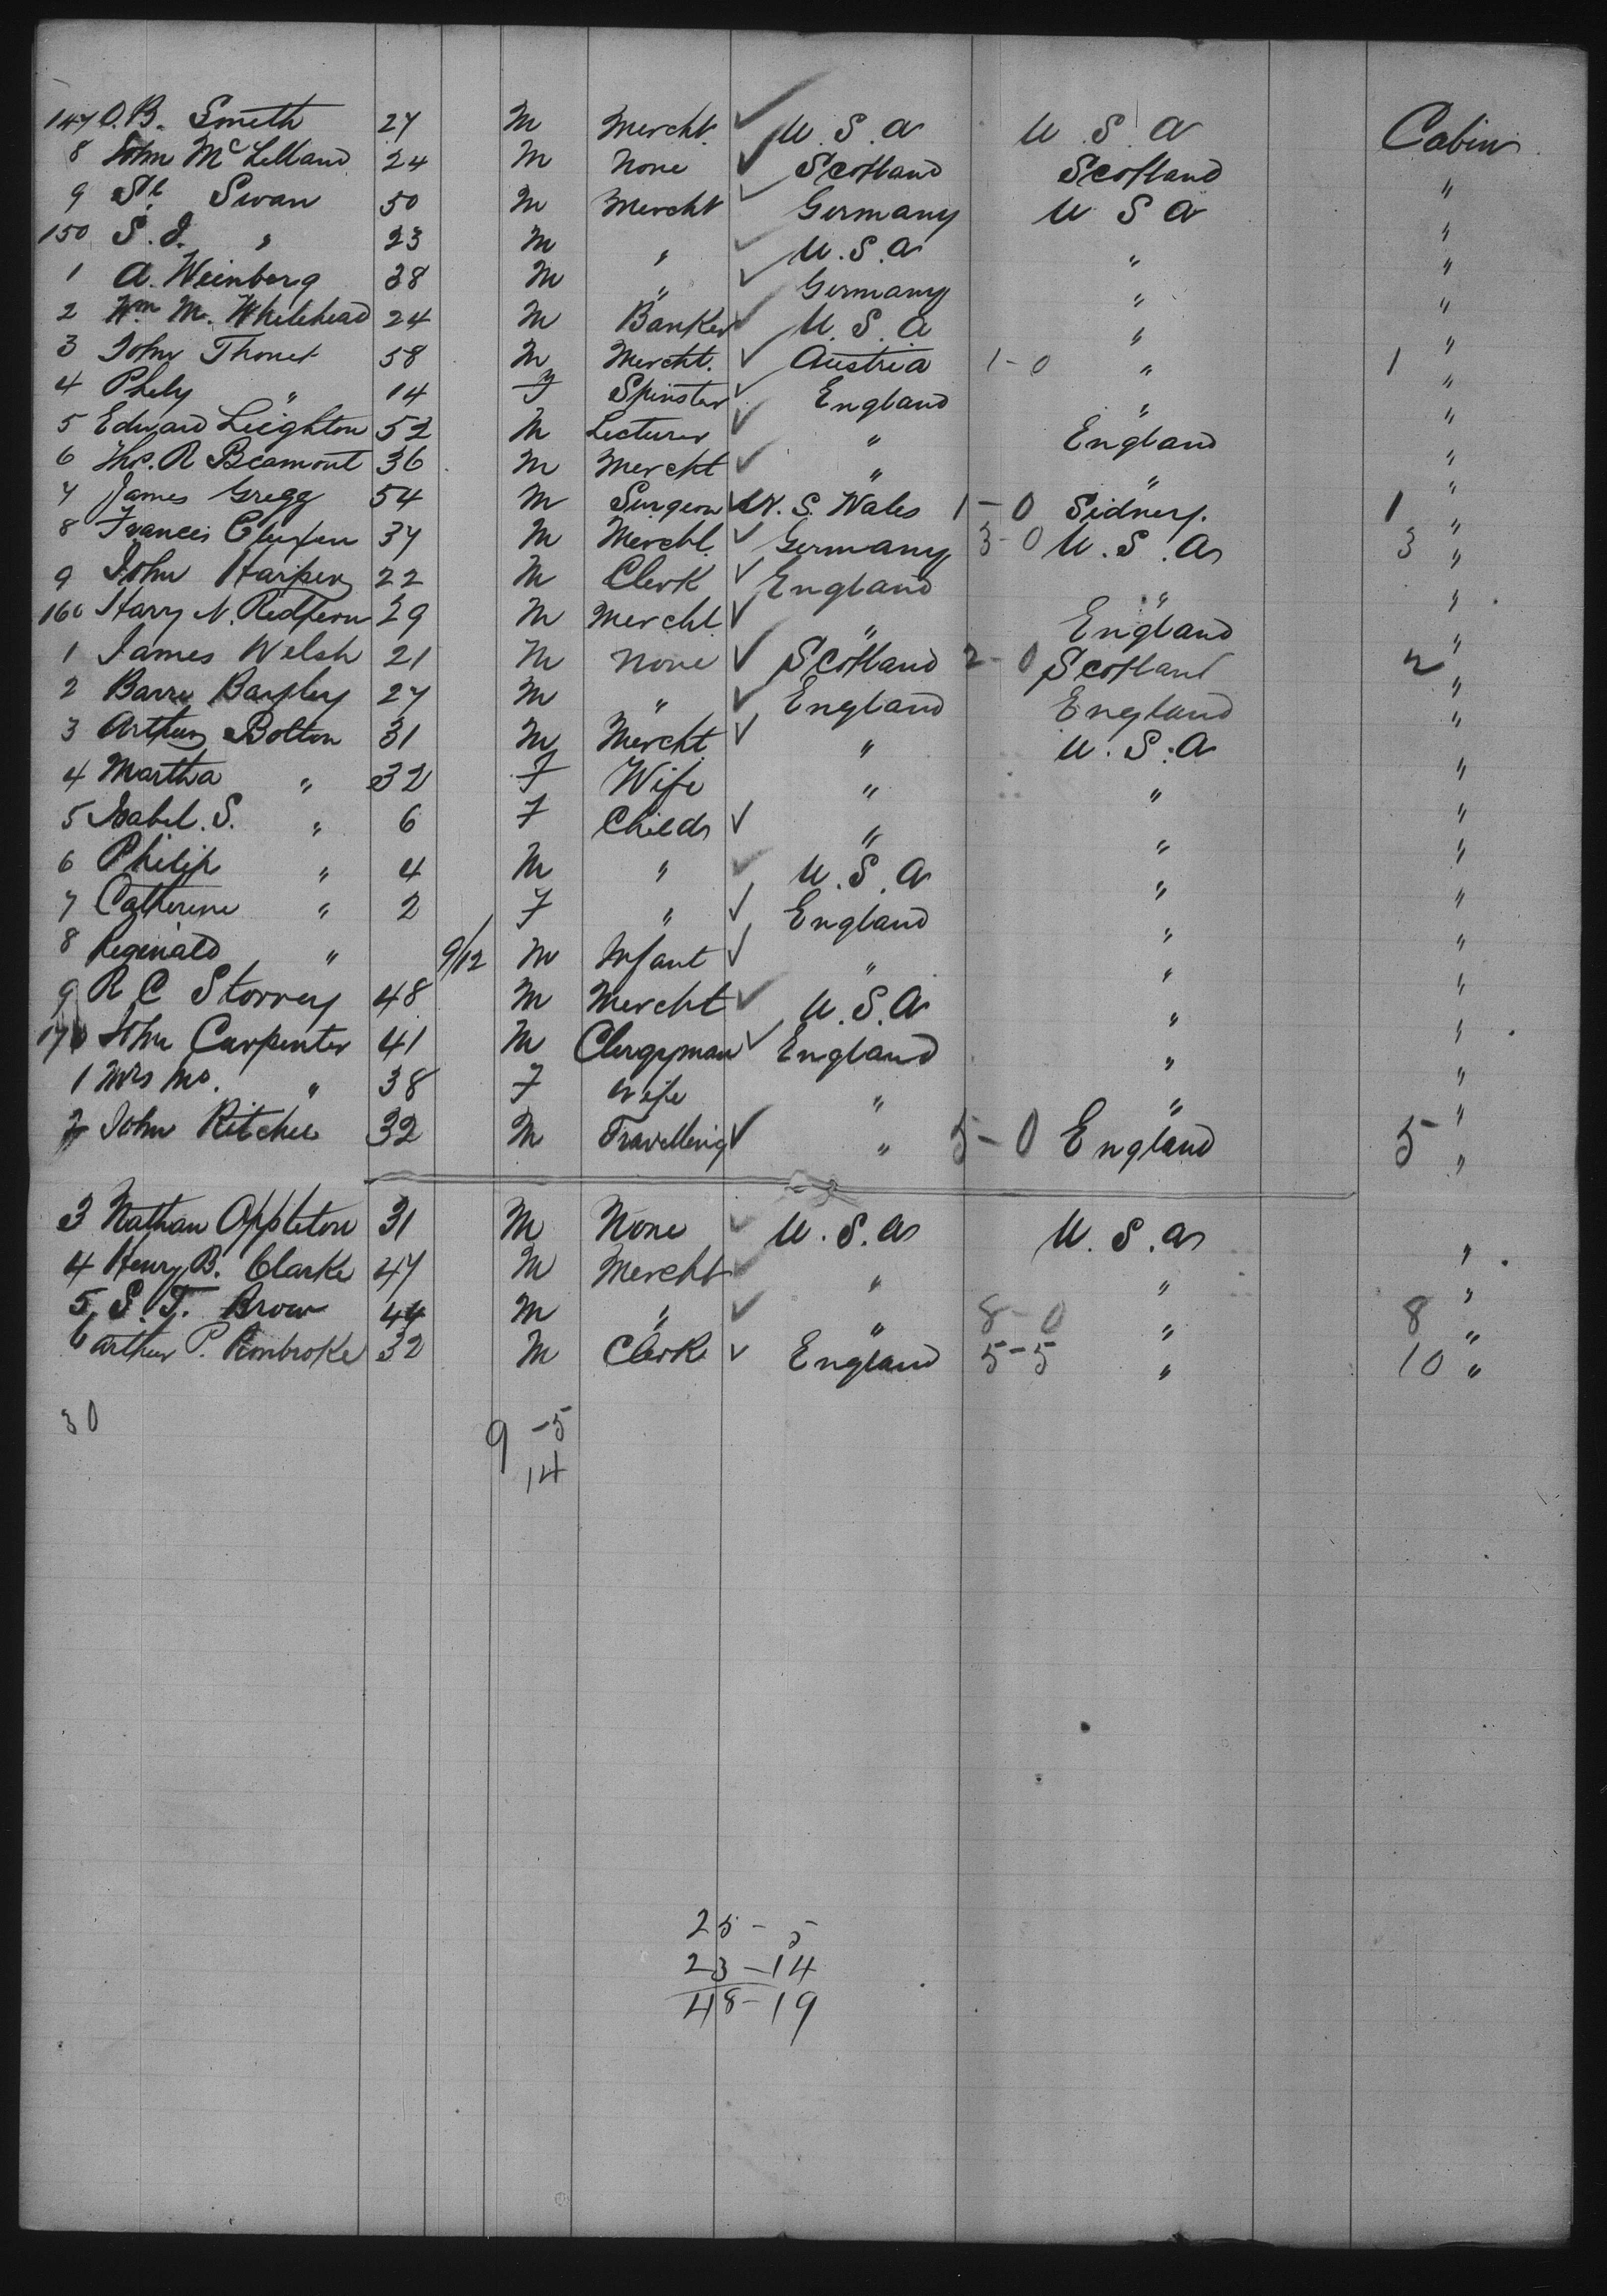 147 O. B. Smith 27 M Mercht. U. S. A U. S. A Cabin
8 John McLelland 24 M None Scotland Scotland "
9 Swan 50 M Mercht Germany U S A "
150 S. J. " 23 M " U. S. A " "
1 A. Weinberg 38 M " Germany " "
2 Wm M. Whitehead 24 M Banker U. S. A " "
3 John Thonet 58 M Mercht. Austria 1-0 " 1 "
4 Phely " 14 F Spinster England " "
5 Edward Leighton 52 M Lecturer " England "
6 Thos. R Beamont 36 M Mercht " " "
7 James Gregg 54 M Surgeon N. S. Wales 1-0 Sidney. 1 "
8 Frances 37 M Mercht. Germany 3-0 U. S. A 3 "
9 John Harper 22 M Clerk England " "
160 Harry N. Redfern 29 M Mercht. " England "
1 James Welsh 21 M None Scotland 2-0 Scotland 2 "
2 27 M " England England "
3 Arthur Bolton 31 M Mercht " U. S. A "
4 Martha " 32 F Wife " " "
5 Isabel. S. " 6 F Child " " "
6 Philip " 4 M " U. S. A " "
7 Catherine " 2 F " England " "
8 Reginald " 9/12 M Infant " " "
9 R C Storrey 48 M Mercht U. S. A " "
170 John Carpenter 41 M Clergyman England " "
1 Mrs " 38 F Wife " " "
2 John Ritchie 32 M Travelling " 5-0 England 5 "
3 Nathan Appleton 31 M None U. S. A U. S. A "
4 Henry B. Clarke 47 M Mercht " " "
5 S. T. Brow 44 M " " 8-0 " 8 "
6 Arthur P. Pembroke 32 M Clerk England 5-5 " 10 "
30 9-5
14
25-5
23-14
48-19